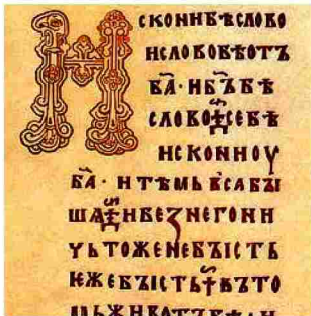 ИСКОНИ БѢ СЛОВО
И СЛОВО БѢ ОТЪ
БА҃ · И БЪ҃ БѢ
СЛОВО СЕ БѢ
ИСКОНИ ОУ
БА҃ · И ТѢМЬ ВЬСА БЪІ
ШѦ И БЕЗ НЕГО НИ
ЧЬТОЖЕ НЕ БЪІСТЬ
ѤЖЕ БЪІСТЬ ВЪ ТО
МЬ ЖИВОТЪ БѢ · И